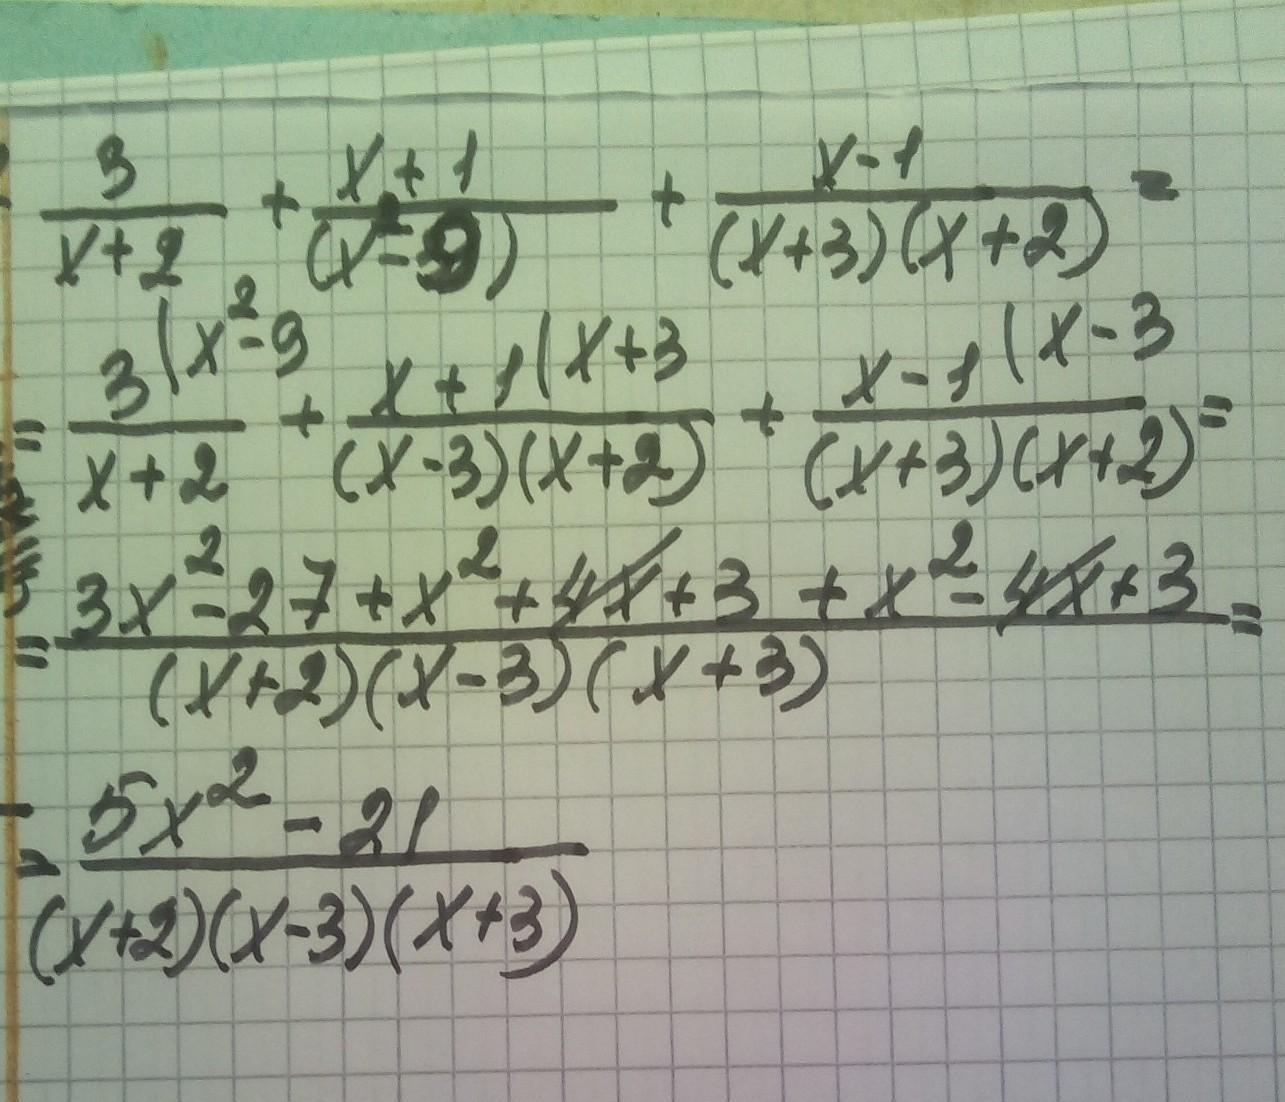 3/(x+2) + (x+1)/(x²-9) + (x-1)/((x+3)(x+2)) =
= 3(x²-9/(x+2) + x+1(x+3/((x-3)(x+2)) + x-1(x-3/((x+3)(x+2)) =
= (3x²-27+x²+4x+3+x²-4x+3)/((x+2)(x-3)(x+3)) =
= (5x²-21)/((x+2)(x-3)(x+3))